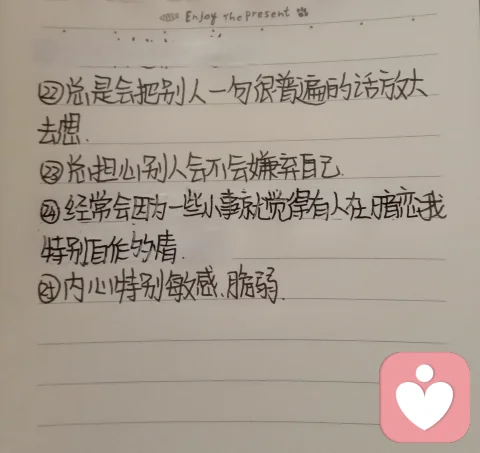 Enjoy the present
㉒总是会把别人一句很普遍的话放大
去想.
㉓总担心别人会不会嫌弃自己.
㉔经常会因为一些小事就觉得有人在暗恋我
特别自作多情.
㉕内心特别敏感、脆弱.